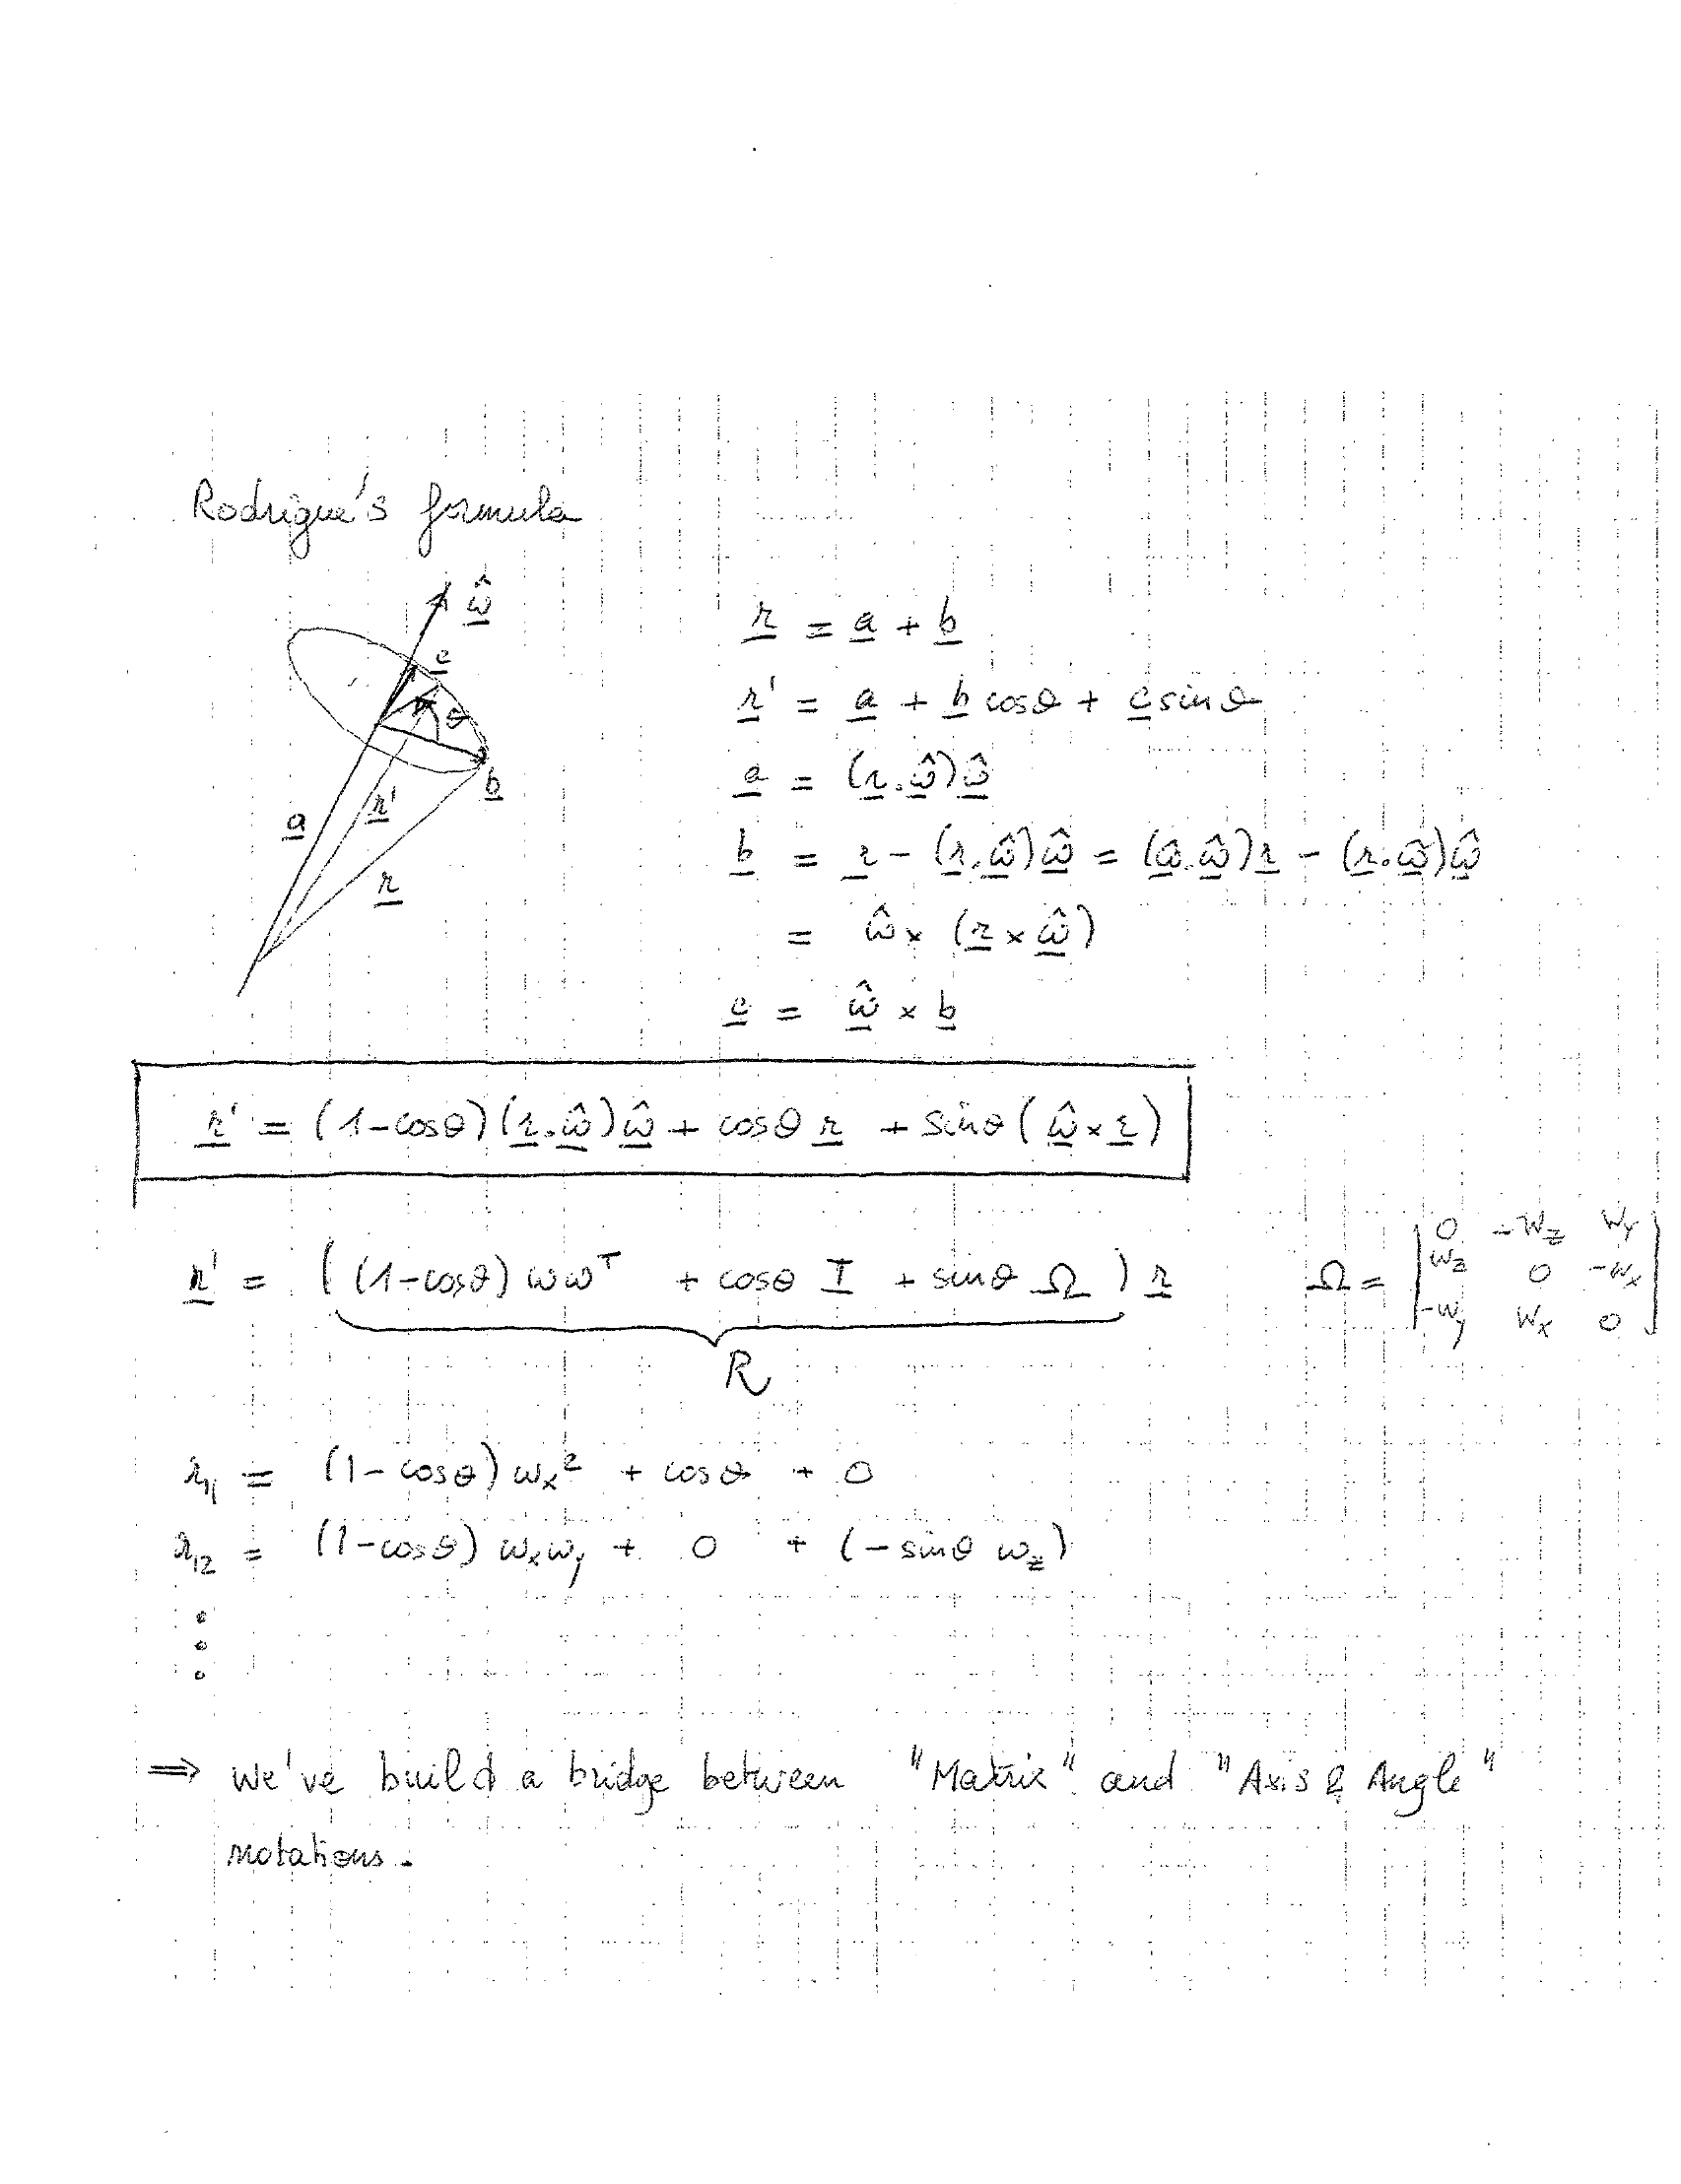 Rodrigue's formula
ω̂
c
θ
b
a
r'
r
r = a + b
r' = a + b cosθ + c sinθ
a = (r.ω̂)ω̂
b = r - (r.ω̂)ω̂ = (ω̂.ω̂)r - (r.ω̂)ω̂
= ω̂ × (r × ω̂)
c = ω̂ × b
r' = (1-cosθ)(r.ω̂)ω̂ + cosθ r + sinθ(ω̂×r)
r' = ((1-cosθ) ωω^T + cosθ I + sinθ Ω) r
R
Ω =
0 -w_z w_y
w_z 0 -w_x
-w_y w_x 0
r_11 = (1-cosθ) ω_x² + cosθ + 0
r_12 = (1-cosθ) ω_xω_y + 0 + (-sinθ ω_z)
⇒ We've build a bridge between "Matrix" and "Axis & Angle"
notations.